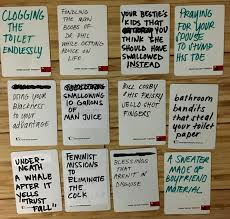 CLOGGING
THE
TOILET
ENDLESSLY
FONDLING
THE MAN
BOOBS OF
DR PHIL
WHILE GETTING
ADVICE ON
LIFE
YOUR BESTIE'S
KIDS THAT
YOU
THINK SHE
SHOULD HAVE
SWALLOWED
INSTEAD
PRAYING
FOR YOUR
SPOUSE
TO STUMP
HIS TOE
USING YOUR
BLACKNESS
TO YOUR
ADVANTAGE
SWALLOWING
10 GALLONS
OF
MAN JUICE
BILL COSBY
FRISKY
JELLO SHOT
FINGERS
bathroom
bandits
that steal
your toilet
paper
UNDER-
NEATH
A WHALE
AFTER IT
YELLS
"TRUST
FALL"
FEMINIST
MISSIONS
TO
ELIMINATE
THE
COCK
BLESSINGS
THAT
AREN'T IN
DISGUISE
A SWEATER
MADE OF
BOYFRIEND
MATERIAL